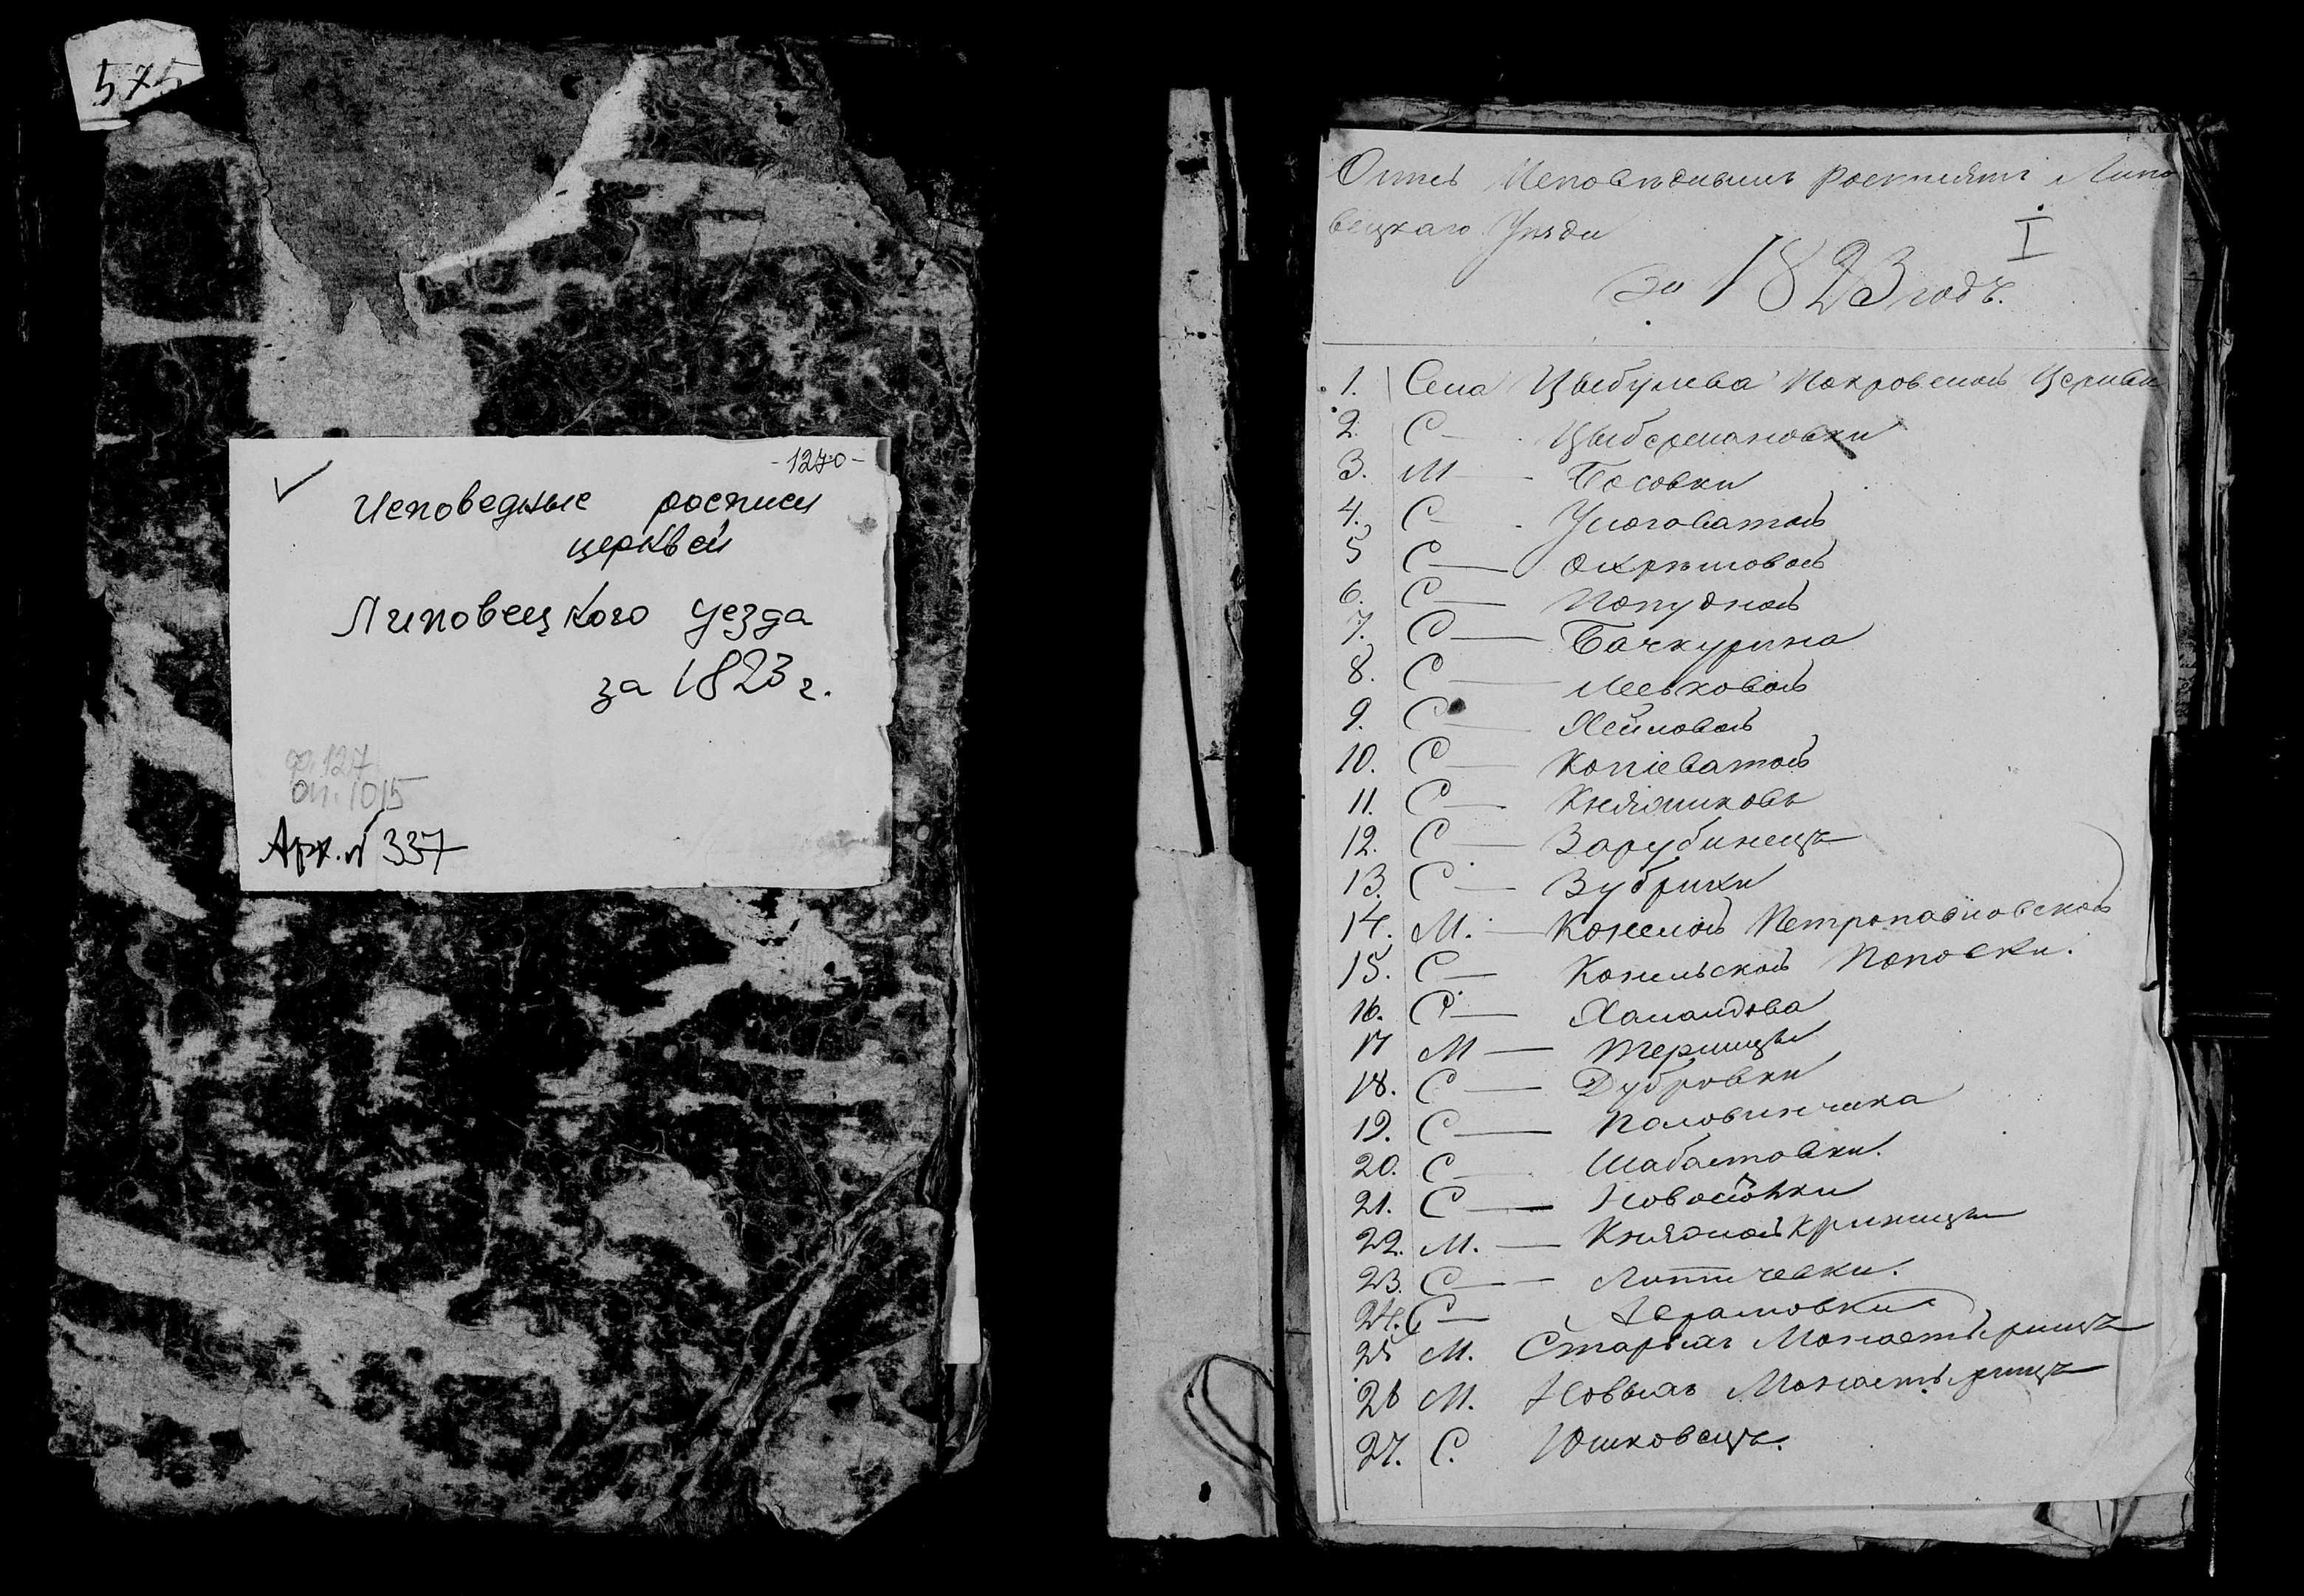 575
-1270-
Исповедные росписи
церквей
Липовецкого уезда
за 1823 г.
ф. 127
оп. 1015
Арх. № 337
Опись Исповѣднымъ росписямъ Липо
вецкаго Уѣзда
I
за 1823 годъ.
1. Села Цыбулева Покровской Церкви
2. С — Цыбермановки
3. М — Босовки
4. С — Угловатой
5 С — Охрѣмовой
6. С — Попудной
7. С — Бачкурина
8. С — Леськовой
9. С — Хейловой
10. С — Копіеватой
11. С — Княжиковъ
12. С — Зарубинецъ
13. С — Зубрихи
14. М. — Конелой Петропавловской
15. С — Конельской Поповки.
16. С — Халаидова
17 М — Терлицы
18. С — Дубровки
19. С — Половинчика
20. С — Шабастовки.
21. С — Новосіолки
22. М. — Княжой Криницы
23. С — Леппичевки.
24. С — Аврамовки
25 М. Старыхъ Монастырищъ
26 М. Новыхъ Монастырищъ
27. С. Юшковецъ.